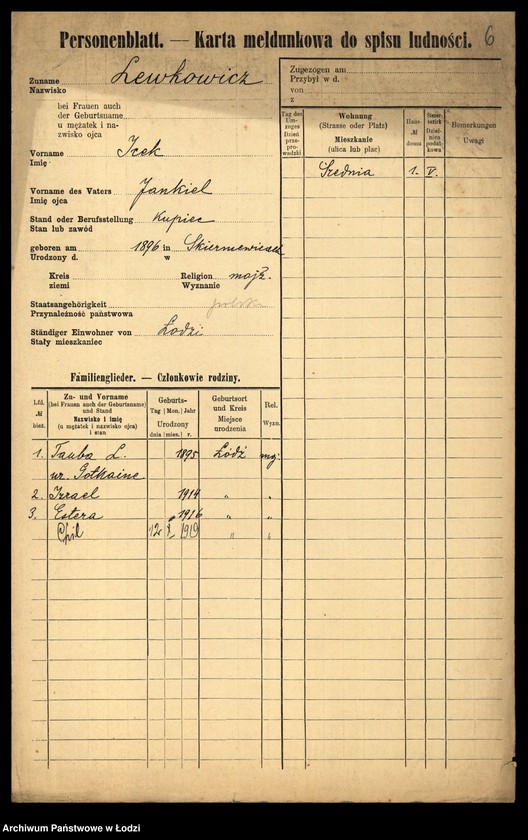 Personenblatt. — Karta meldunkowa do spisu ludności. 6
Zuname
Nazwisko
Lewkowicz
bei Frauen auch
der Geburtsname
u mężatek i na-
zwisko ojca
Vorname
Imię
Icek
Vorname des Vaters
Imię ojca
Jankiel
Stand oder Berufsstellung
Stan lub zawód
Kupiec
geboren am 1896 in
Urodzony d. w
Skierniewicach
Kreis
ziemi
Religion
Wyznanie
mojż.
Staatsangehörigkeit
Przynależność państwowa
polska
Ständiger Einwohner von
Stały mieszkaniec
Łodzi
Zugezogen am
Przybył w d.
von
z
Tag des
Um-
zuges
Dzień
prze-
prowadzki
Wohnung
(Strasse oder Platz)
Mieszkanie
(ulica lub plac)
Haus-
№
domu
Steuer-
bezirk
Dziel-
nica
podat-
kowa
Bemerkungen
Uwagi
Średnia 1. V.
Familienglieder. — Członkowie rodziny.
Lfd.
№
bież.
Zu- und Vorname
(bei Frauen auch der Geburtsname)
und Stand
Nazwisko i imię
(u mężatek i nazwisko ojca)
i stan
Geburts-
Tag Mon. Jahr
Urodzony
dnia mies. r.
Geburtsort
und Kreis
Miejsce
urodzenia
Rel.
Wyzn.
1. Tauba L. 1895 Łódź moj.
ur. Gotkaine
2. Izrael 1914 „ „
3. Estera 1916 „ „
Chil 12 1919 „ „
Archiwum Państwowe w Łodzi